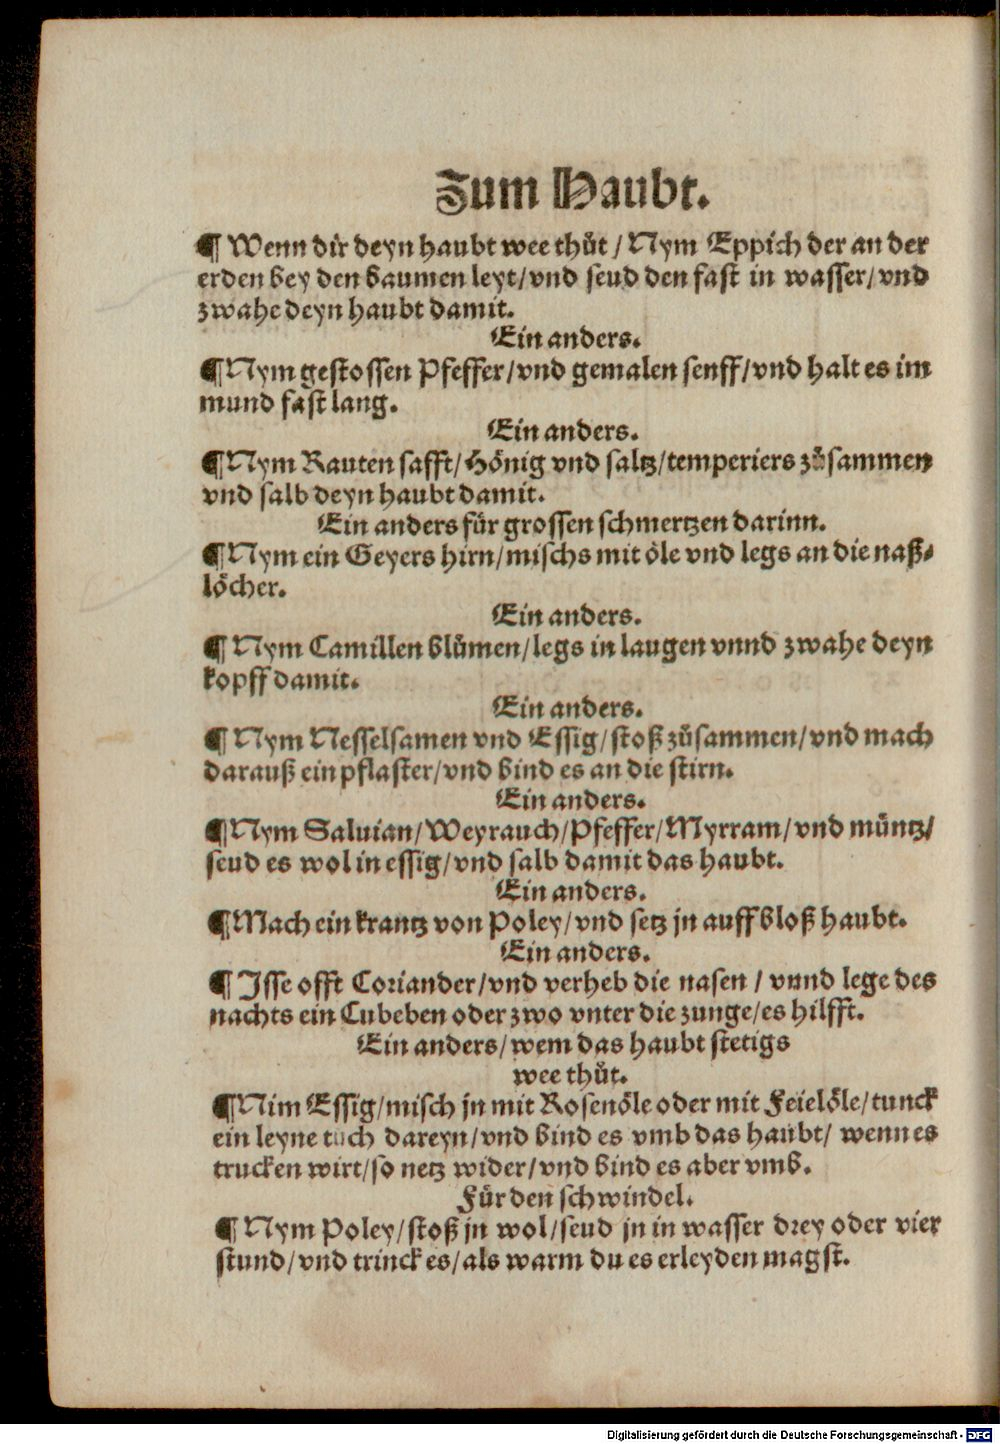 Zum Haubt.
¶ Wenn dir deyn haubt wee thůt / Nym Eppich der an der
erden bey den baumen leyt/vnd seud den fast in wasser/vnd
zwahe deyn haubt damit.
Ein anders.
¶ Nym gestossen Pfeffer/vnd gemalen senff/vnd halt es im
mund fast lang.
Ein anders.
¶ Nym Rauten safft/Hönig vnd saltz/temperiers zůsammen
vnd salb deyn haubt damit.
Ein anders für grossen schmertzen darinn.
¶ Nym ein Geyers hirn/mischs mit öle vnd legs an die naß-
löcher.
Ein anders.
¶ Nym Camillen blůmen/legs in laugen vnnd zwahe deyn
kopff damit.
Ein anders.
¶ Nym Nesselsamen vnd Essig/stoß zůsammen/vnd mach
darauß ein pflaster/vnd bind es an die stirn.
Ein anders.
¶ Nym Saluian/Weyrauch/Pfeffer/Myrram/vnd müntz/
seud es wol in essig/vnd salb damit das haubt.
Ein anders.
¶ Mach ein krantz von Poley/vnd setz jn auff bloß haubt.
Ein anders.
¶ Isse offt Coriander/vnd verheb die nasen / vnnd lege des
nachts ein Cubeben oder zwo vnter die zunge/es hilfft.
Ein anders/wem das haubt stetigs
wee thůt.
¶ Nim Essig/misch jn mit Rosenöle oder mit Feielöle/tunck
ein leyne tuch dareyn/vnd bind es vmb das haubt/ wenn es
trucken wirt/so netz wider/vnd bind es aber vmb.
Für den schwindel.
¶ Nym Poley/stoß jn wol/seud jn in wasser drey oder vier
stund/vnd trinck es/als warm du es erleyden magst.
Digitalisierung gefördert durch die Deutsche Forschungsgemeinschaft - DFG